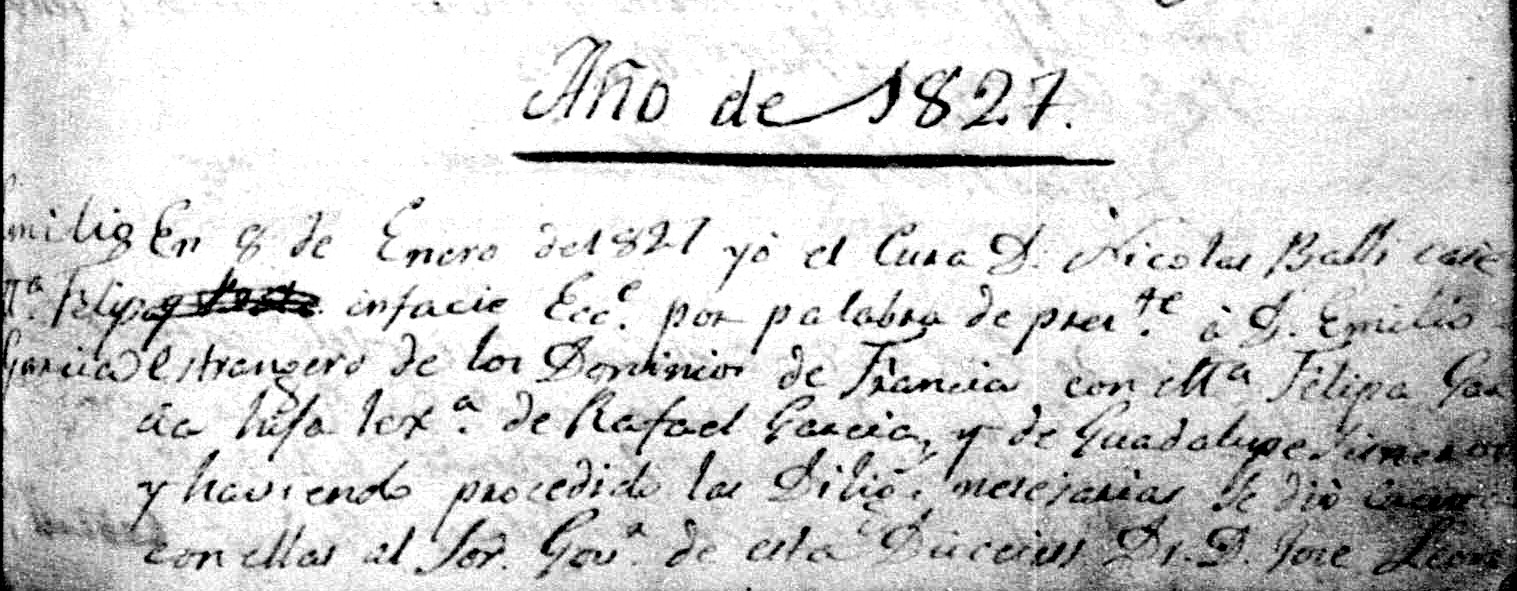 Año de 1827.
Emilio En 8 de Enero de 1827 yó el Cura D. Nicolas Balli case
Mª. Felipa infacie Ecc.e por palabra de pres.te à D. Emilio
Garcia estrangero de los Dominios de Francia con Mª Felipa Gar
cia hija lexª. de Rafael Garcia, y de Guadalupe
y haviendo procedido las Dilig.s necesarias se dió
con ellas al Sor. Gov.r de esta Diocesis Dr. D. Jose